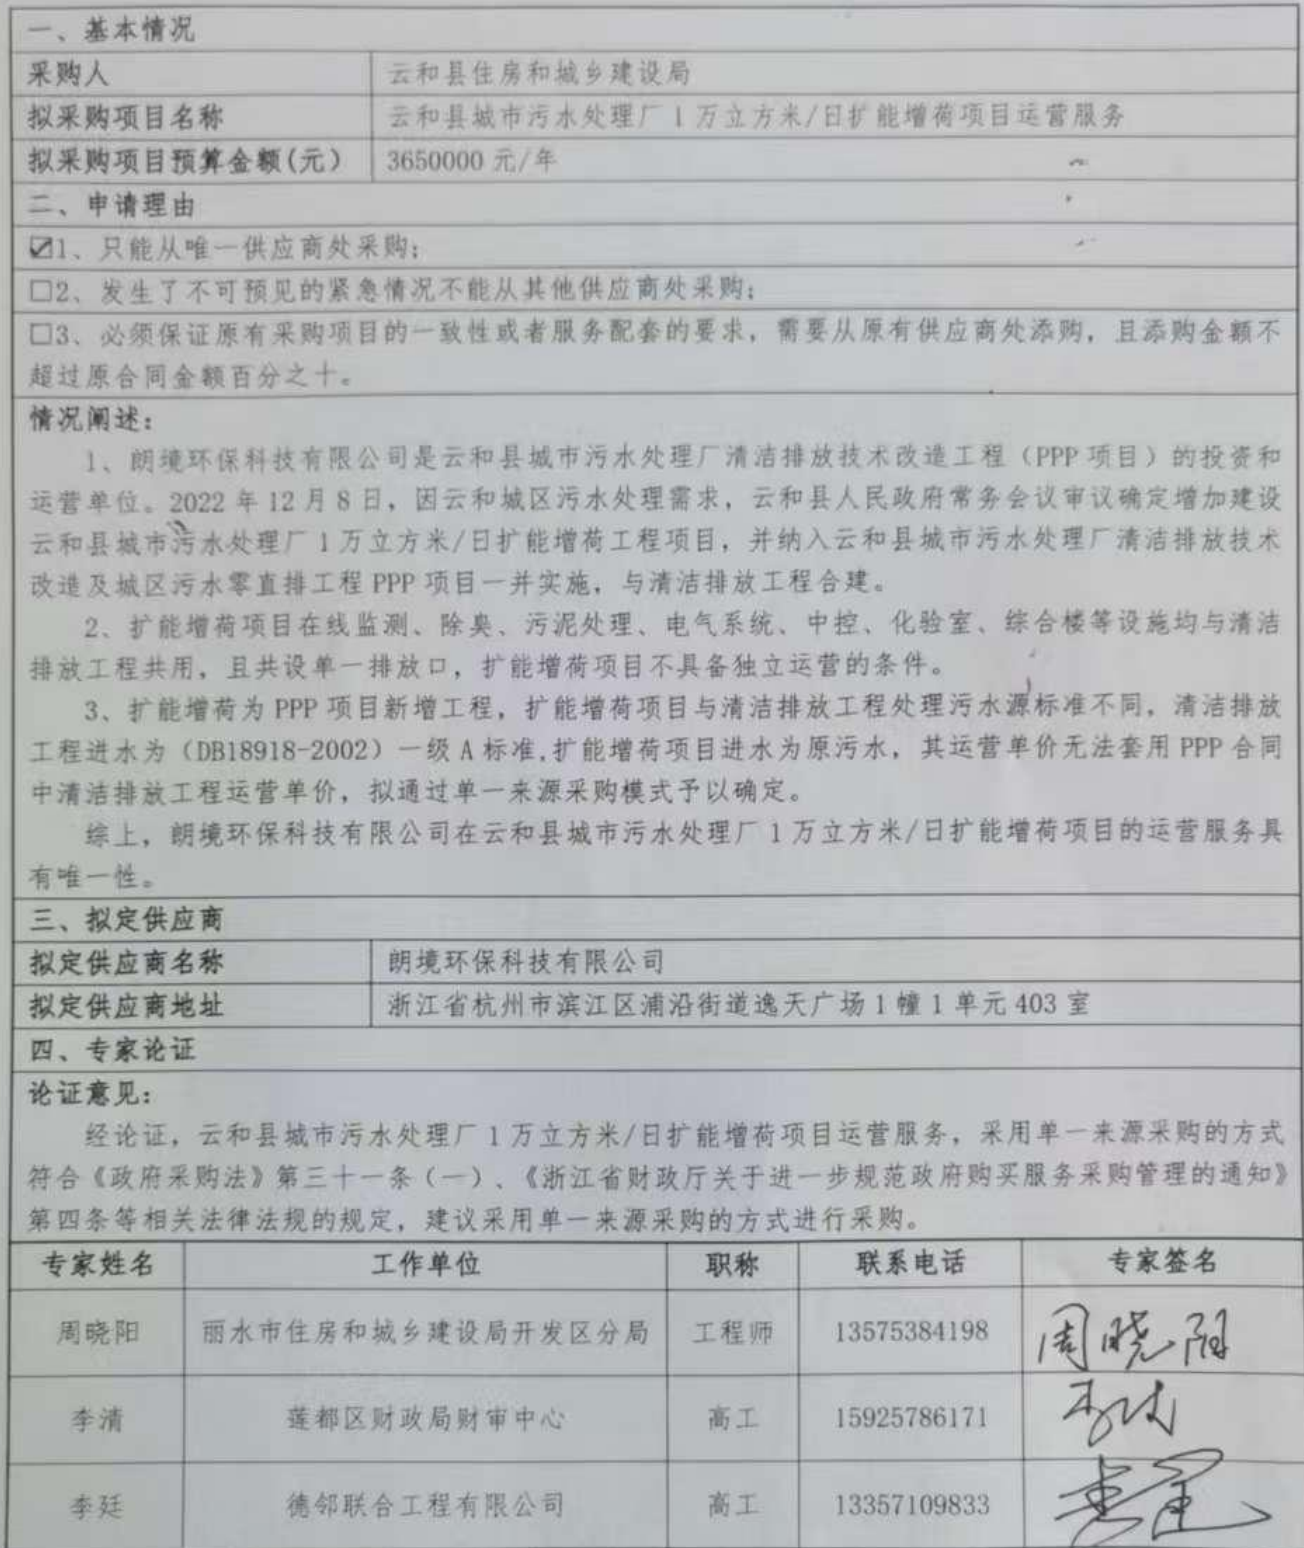 一、基本情况
采购人 云和县住房和城乡建设局
拟采购项目名称 云和县城市污水处理厂1万立方米/日扩能增荷项目运营服务
拟采购项目预算金额(元) 3650000元/年
二、申请理由
☑1、只能从唯一供应商处采购;
□2、发生了不可预见的紧急情况不能从其他供应商处采购;
□3、必须保证原有采购项目的一致性或者服务配套的要求，需要从原有供应商处添购，且添购金额不
超过原合同金额百分之十。
情况阐述:
1、朗境环保科技有限公司是云和县城市污水处理厂清洁排放技术改造工程（PPP项目）的投资和
运营单位。2022年12月8日，因云和城区污水处理需求，云和县人民政府常务会议审议确定增加建设
云和县城市污水处理厂1万立方米/日扩能增荷工程项目，并纳入云和县城市污水处理厂清洁排放技术
改造及城区污水零直排工程PPP项目一并实施，与清洁排放工程合建。
2、扩能增荷项目在线监测、除臭、污泥处理、电气系统、中控、化验室、综合楼等设施均与清洁
排放工程共用，且共设单一排放口，扩能增荷项目不具备独立运营的条件。
3、扩能增荷为PPP项目新增工程，扩能增荷项目与清洁排放工程处理污水源标准不同，清洁排放
工程进水为（DB18918-2002）一级A标准,扩能增荷项目进水为原污水，其运营单价无法套用PPP合同
中清洁排放工程运营单价，拟通过单一来源采购模式予以确定。
综上，朗境环保科技有限公司在云和县城市污水处理厂1万立方米/日扩能增荷项目的运营服务具
有唯一性。
三、拟定供应商
拟定供应商名称 朗境环保科技有限公司
拟定供应商地址 浙江省杭州市滨江区浦沿街道逸天广场1幢1单元403室
四、专家论证
论证意见:
经论证，云和县城市污水处理厂1万立方米/日扩能增荷项目运营服务，采用单一来源采购的方式
符合《政府采购法》第三十一条（一）、《浙江省财政厅关于进一步规范政府购买服务采购管理的通知》
第四条等相关法律法规的规定，建议采用单一来源采购的方式进行采购。
专家姓名 工作单位 职称 联系电话 专家签名
周晓阳 丽水市住房和城乡建设局开发区分局 工程师 13575384198 周晓阳
李清 莲都区财政局财审中心 高工 15925786171
李廷 德邻联合工程有限公司 高工 13357109833